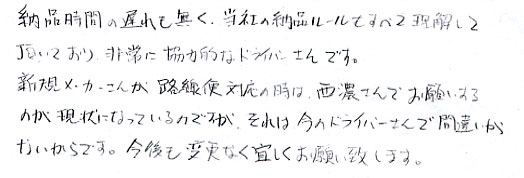 納品時間の遅れも無く、当社の納品ルールもすべて理解して
頂いており、非常に協力的なドライバーさんです。
新規メーカーさんが路線便対応の時は、西濃さんでお願いする
のが現状になっているのですが、それは今のドライバーさんで間違いが
ないからです。今後も変更なく宜しくお願い致します。